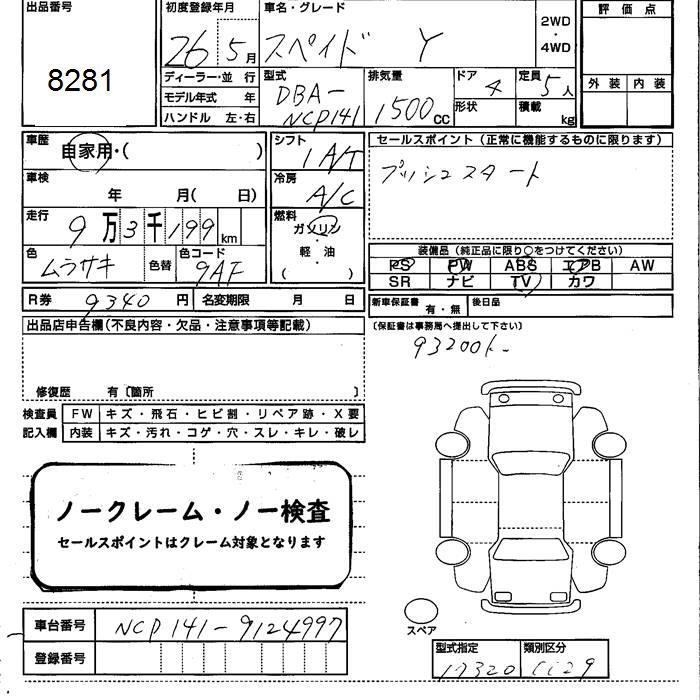 出品番号
8281
初度登録年月
26 5月
車名・グレード
スペイド Y
2WD
・
4WD
評価点
外装 内装
ディーラー・並行
モデル年式 年
ハンドル 左・右
型式
DBA-
NCP141
排気量
1500cc
ドア
4
形状
定員
5人
積載
kg
車歴
自家用・( )
車検
年 月( 日)
走行
9万3千199km
色
ムラサキ
色替
色コード
9AF
R券 9340円 名変期限 月 日
シフト
1A/T
冷房
A/C
燃料
ガソリン
・
軽・油
( )
セールスポイント(正常に機能するものに限ります)
プッシュスタート
装備品(純正品に限り○をつけてください)
PS PW ABS エアB AW
SR ナビ TV カワ
新車保証書 有・無 後日品
(保証書は事務局へ提出して下さい)
93200k-
出品店申告欄(不良内容・欠品・注意事項等記載)
修復歴 有〔箇所 〕
検査員 FW キズ・飛石・ヒビ割・リペア跡・X要
記入欄 内装 キズ・汚れ・コゲ・穴・スレ・キレ・破レ
ノークレーム・ノー検査
セールスポイントはクレーム対象となります
スペア
車台番号 NCP141-9124997
登録番号
型式指定 類別区分
17320 1129